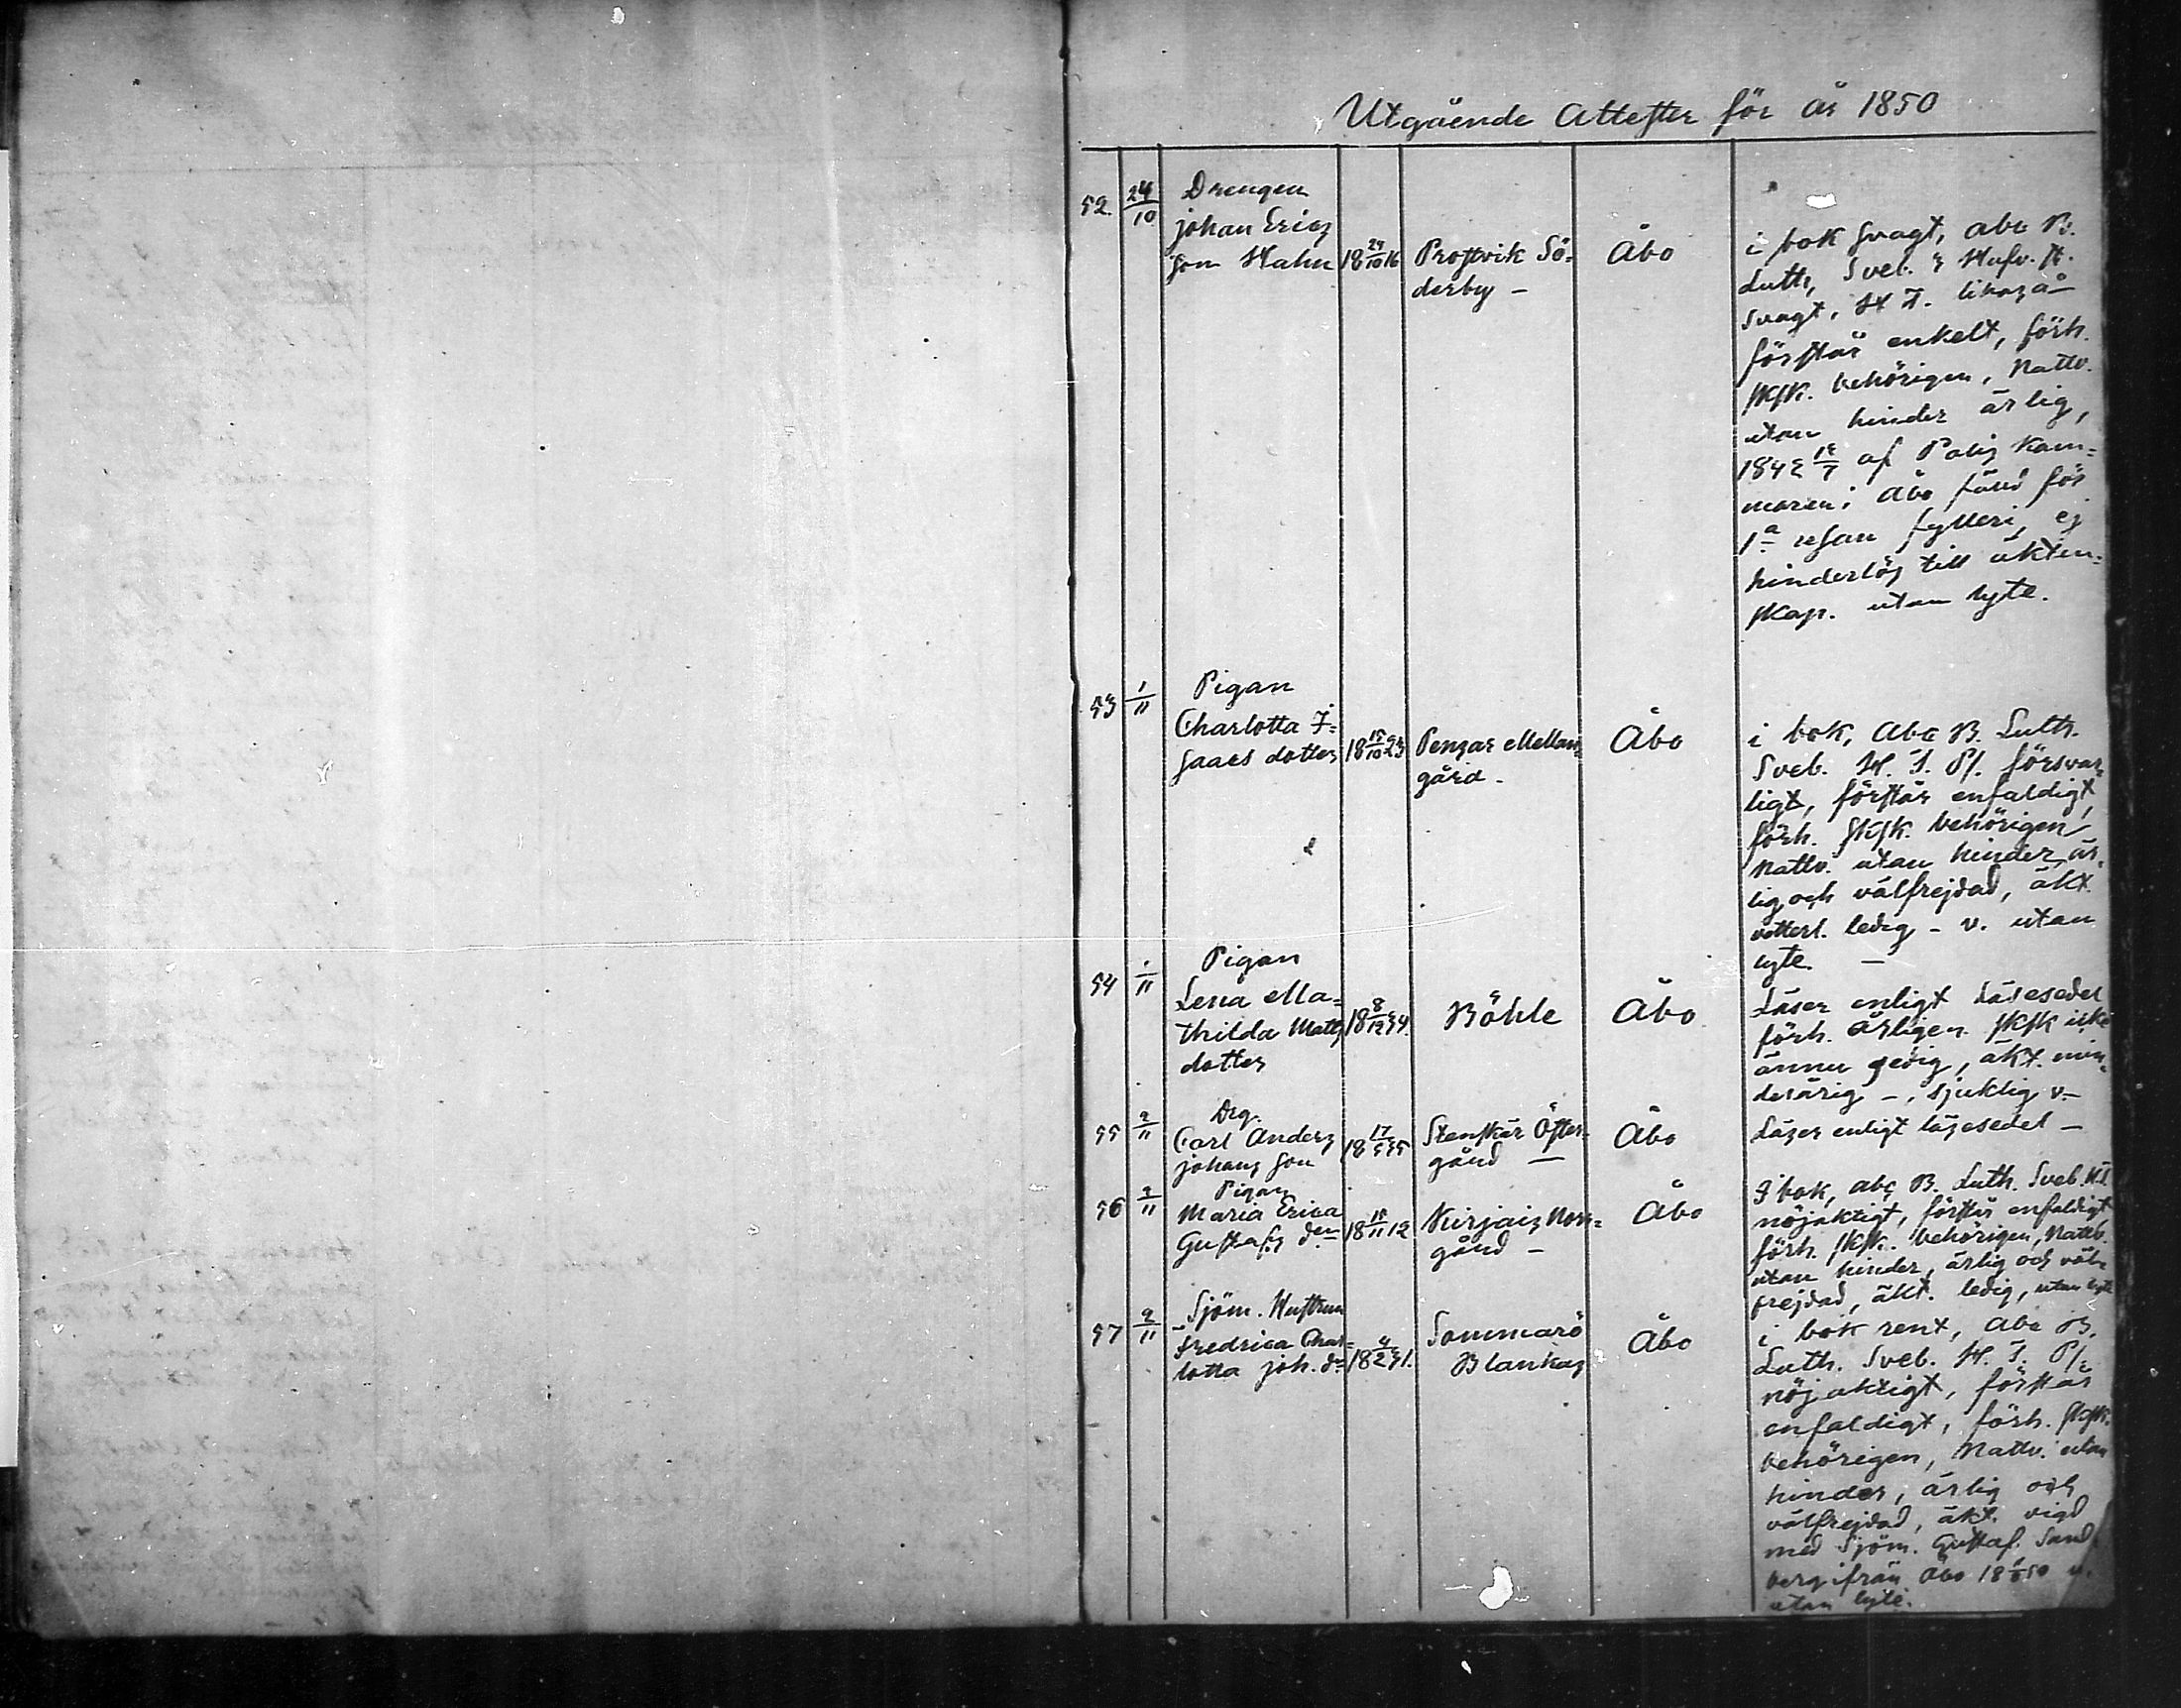 Utgående Attester för år 1850
52. 24/10
Drengen
johan Erics
son Hahn
18 24/10 16
Prostvik Sö-
derby –
Åbo
i bok svagt, abc B.
Luth, Sveb. & Hufv. st.
svagt, H T. likaså
förstår enkelt, förh.
skfk. behörigen, Nattv.
utan hinder ärlig,
af Polis Kam-
maren i Åbo för
1a resan fylleri, ej
hinderlös till äkten-
skap. utan lyte.
53 1/11
Pigan
Charlotta I-
saacs dotter
18 15/10 23
Pensar Mellan-
gård –
Åbo
i bok, Abc B. Luth.
Sveb. H. T. Ps. försvar-
ligt, förstår enfaldigt,
förh. skfk. behörigen
Nattv. utan hinder, är-
lig och välfrejdad, äkt.
vitterl. ledig – v. utan
lyte. –
54 1/11
Pigan
Lena Ma-
thilda Matts
dotter
18 8/12 34.
Böhle
Åbo
Läser enligt Läsesedel
förh. årligen skfk icke
ännu ledig, äkt. min-
derårig –, sjuklig v –
55 2/11
Drg.
Carl Anders
johans son
18 17/5 35
Stenskär Öster-
gård –
Åbo
Läser enligt läsesedel –
56 2/11
Pigan
Maria Erica
Gustafs dr
18 15/11 12
Kirjais Norr-
gård –
Åbo
I bok, abc B. Luth. Sveb. H.T.
nöjaktigt, förstår enfaldigt
förh. skfk. behörigen, Nattv.
utan hinder, ärlig och väl-
frejdad, äkt. ledig, utan lyte
57 2/11
Sjöm. Hustrun
Fredrica Char-
lotta joh. dr
Sommarö
Blankas
Åbo
i bok rent, Abc B.
Luth. Sveb. H. T. Ps.
nöjaktigt, förstår
enfaldigt, förh. skfk.
behörigen, Nattv. utan
hinder, ärlig och
välfrejdad, äkt. vigd
med Sjöm. Gustaf. Sand-
berg ifrån Åbo
utan lyte.